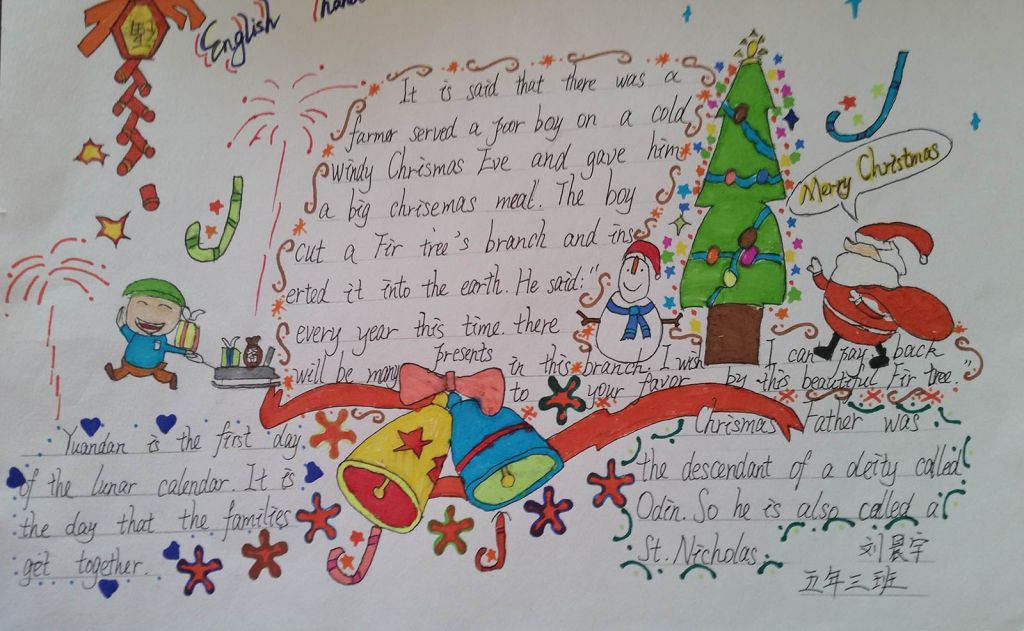 English
It is said that there was a
farmer served a poor boy on a cold
windy Chrismas Eve and gave him
a big chrisemas meal. The boy
cut a Fir tree's branch and ins
erted it into the earth. He said:"
every year this time. there
will be many presents in this branch. I wish I can pay back
to your favor by this beautiful Fir tree.
Merry Christmas
Yuandan is the first day
of the lunar calendar. It is
the day that the families
get together.
Chrismas Father was
the descendant of a deity called
Odin. So he is also called a
St. Nicholas.
刘晨宇
五年三班